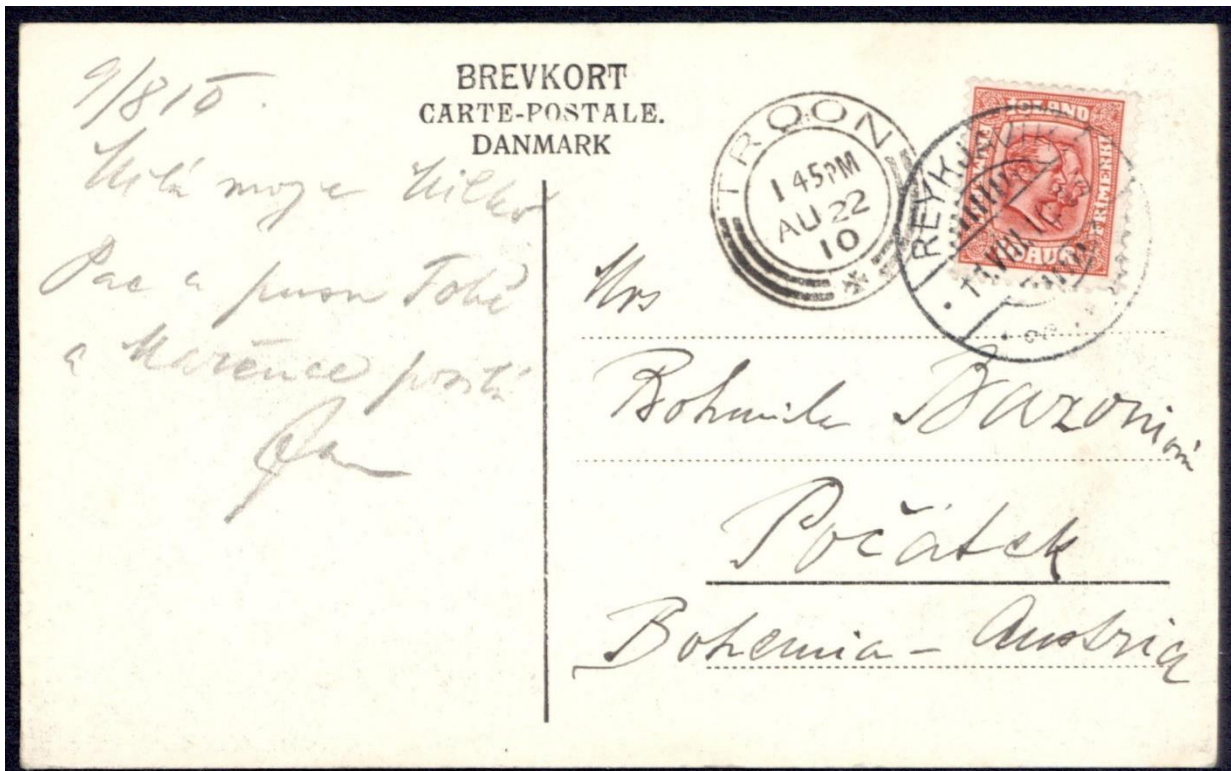 9/8 10.
Milá moje Milko
Pac a pusu Tobě
a Mařence posílá
Jan
BREVKORT
CARTE-POSTALE.
DANMARK
TROON
1 45PM
AU 22
10
REYKJAVIK
VIII. 10
ISLAND
FRIMERKI
AUR
Mrs
Bohumila
Počátek
Bohemia - Austria